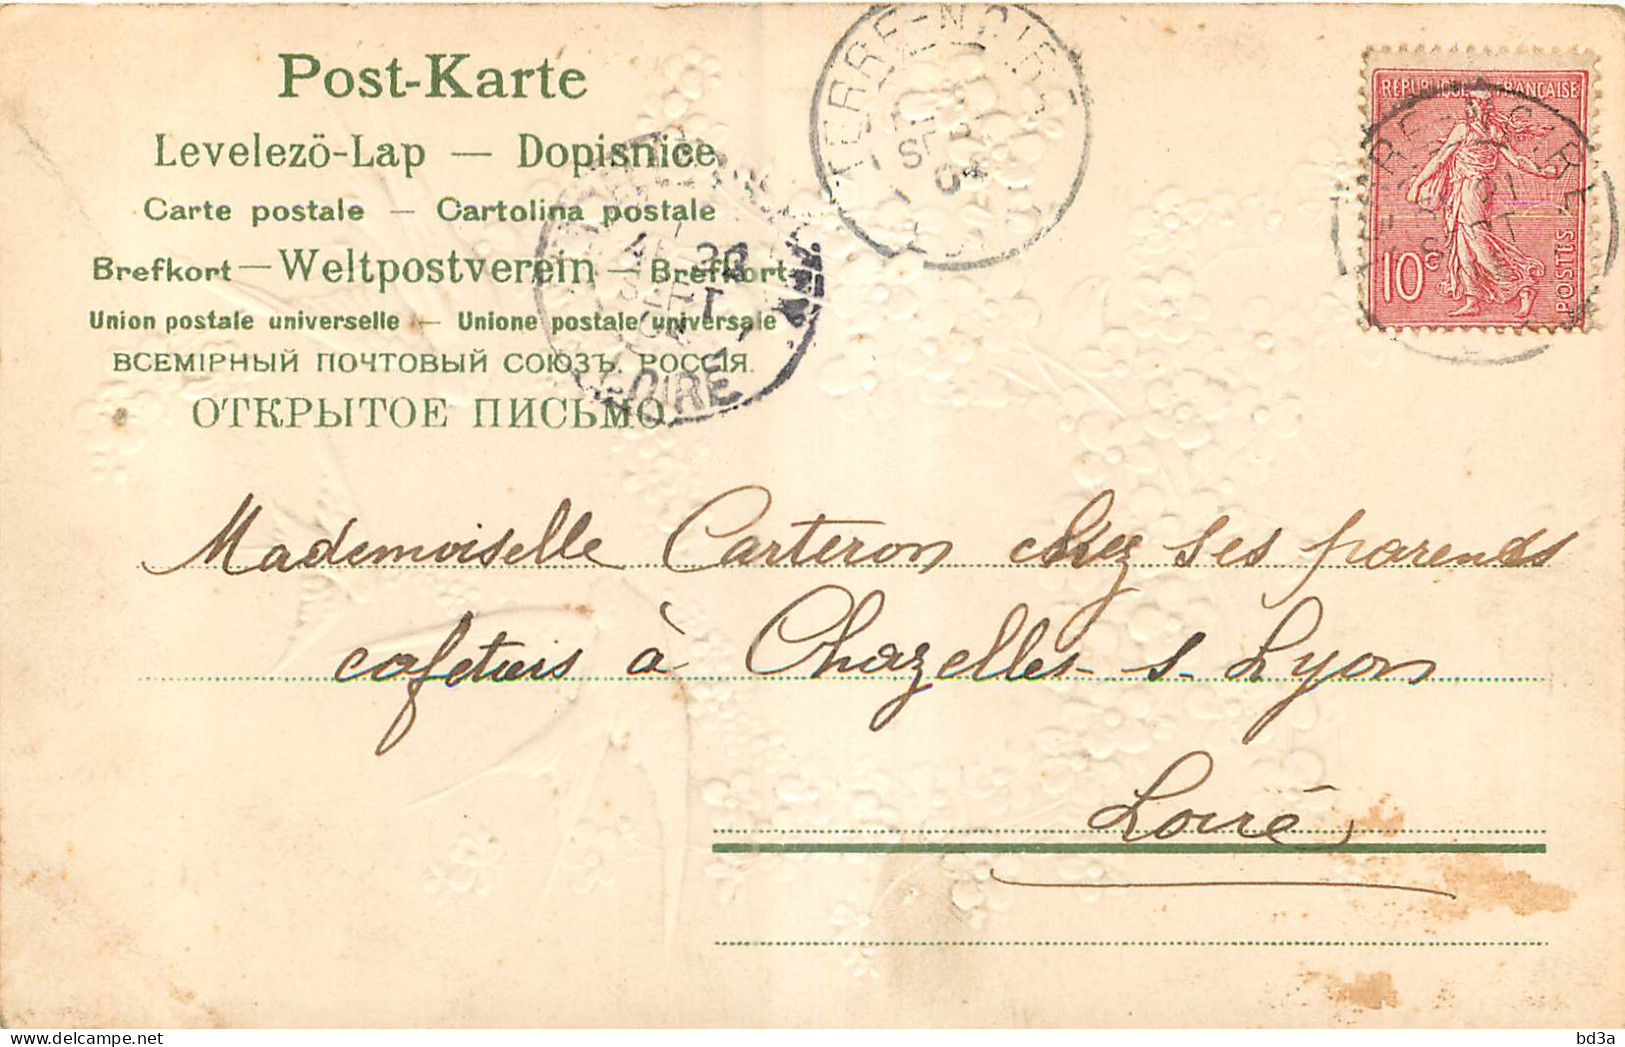 Post-Karte
Levelezö-Lap — Dopisnice
Carte postale — Cartolina postale
Brefkort — Weltpostverein — Brefkort
Union postale universelle — Unione postale universale
ВСЕМІРНЫЙ ПОЧТОВЫЙ СОЮЗЪ. РОССІЯ.
ОТКРЫТОЕ ПИСЬМО.
TERRE-NOIRE
SEPT
04
REPUBLIQUE FRANÇAISE
10c
POSTES
SEPT
LOIRE
Mademoiselle Carteron chez ses parents
cafetiers à Chazelles-s-Lyon
Loire
bd3a